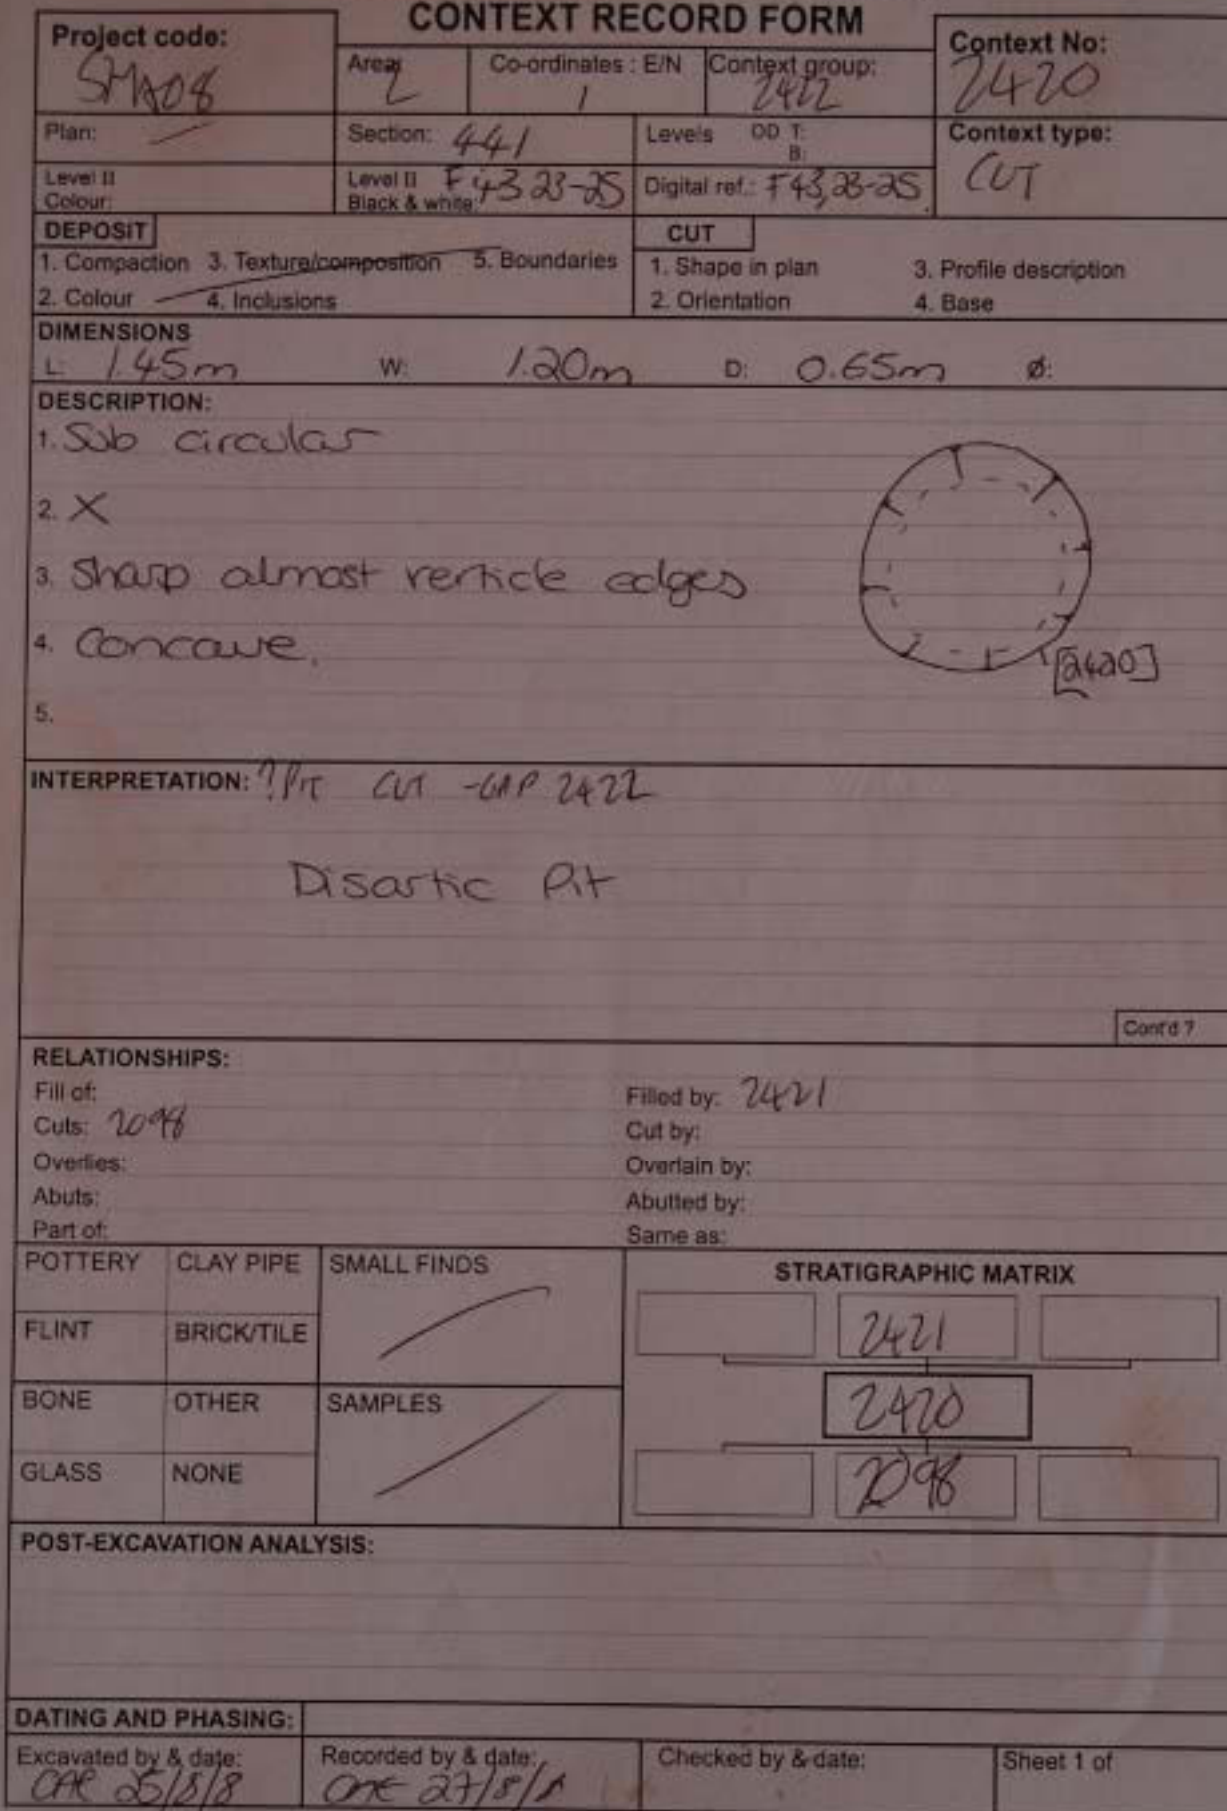 CONTEXT RECORD FORM
Project code:
SMA08
Area:
2
Co-ordinates : E/N
/
Context group:
2422
Context No:
2420
Plan:
Section: 441
Levels OD T:
B:
Context type:
CUT
Level II
Colour:
Level II F43 23-25
Black & white:
Digital ref.: F43, 23-25
DEPOSIT
1. Compaction 3. Texture/composition 5. Boundaries
2. Colour 4. Inclusions
CUT
1. Shape in plan 3. Profile description
2. Orientation 4. Base
DIMENSIONS
L: 1.45m W: 1.20m D: 0.65m Ø:
DESCRIPTION:
1. Sub circular
2. X
3. Sharp almost verticle edges
4. Concave.
[2420]
5.
INTERPRETATION: ? PIT CUT - GRP 2422
Disartic Pit
Cont'd ?
RELATIONSHIPS:
Fill of: Filled by: 2421
Cuts: 2098 Cut by:
Overlies: Overlain by:
Abuts: Abutted by:
Part of: Same as:
POTTERY CLAY PIPE SMALL FINDS
STRATIGRAPHIC MATRIX
2421
FLINT BRICK/TILE
BONE OTHER SAMPLES
2420
GLASS NONE
2098
POST-EXCAVATION ANALYSIS:
DATING AND PHASING:
Excavated by & date: Recorded by & date: Checked by & date: Sheet 1 of
25/8/8